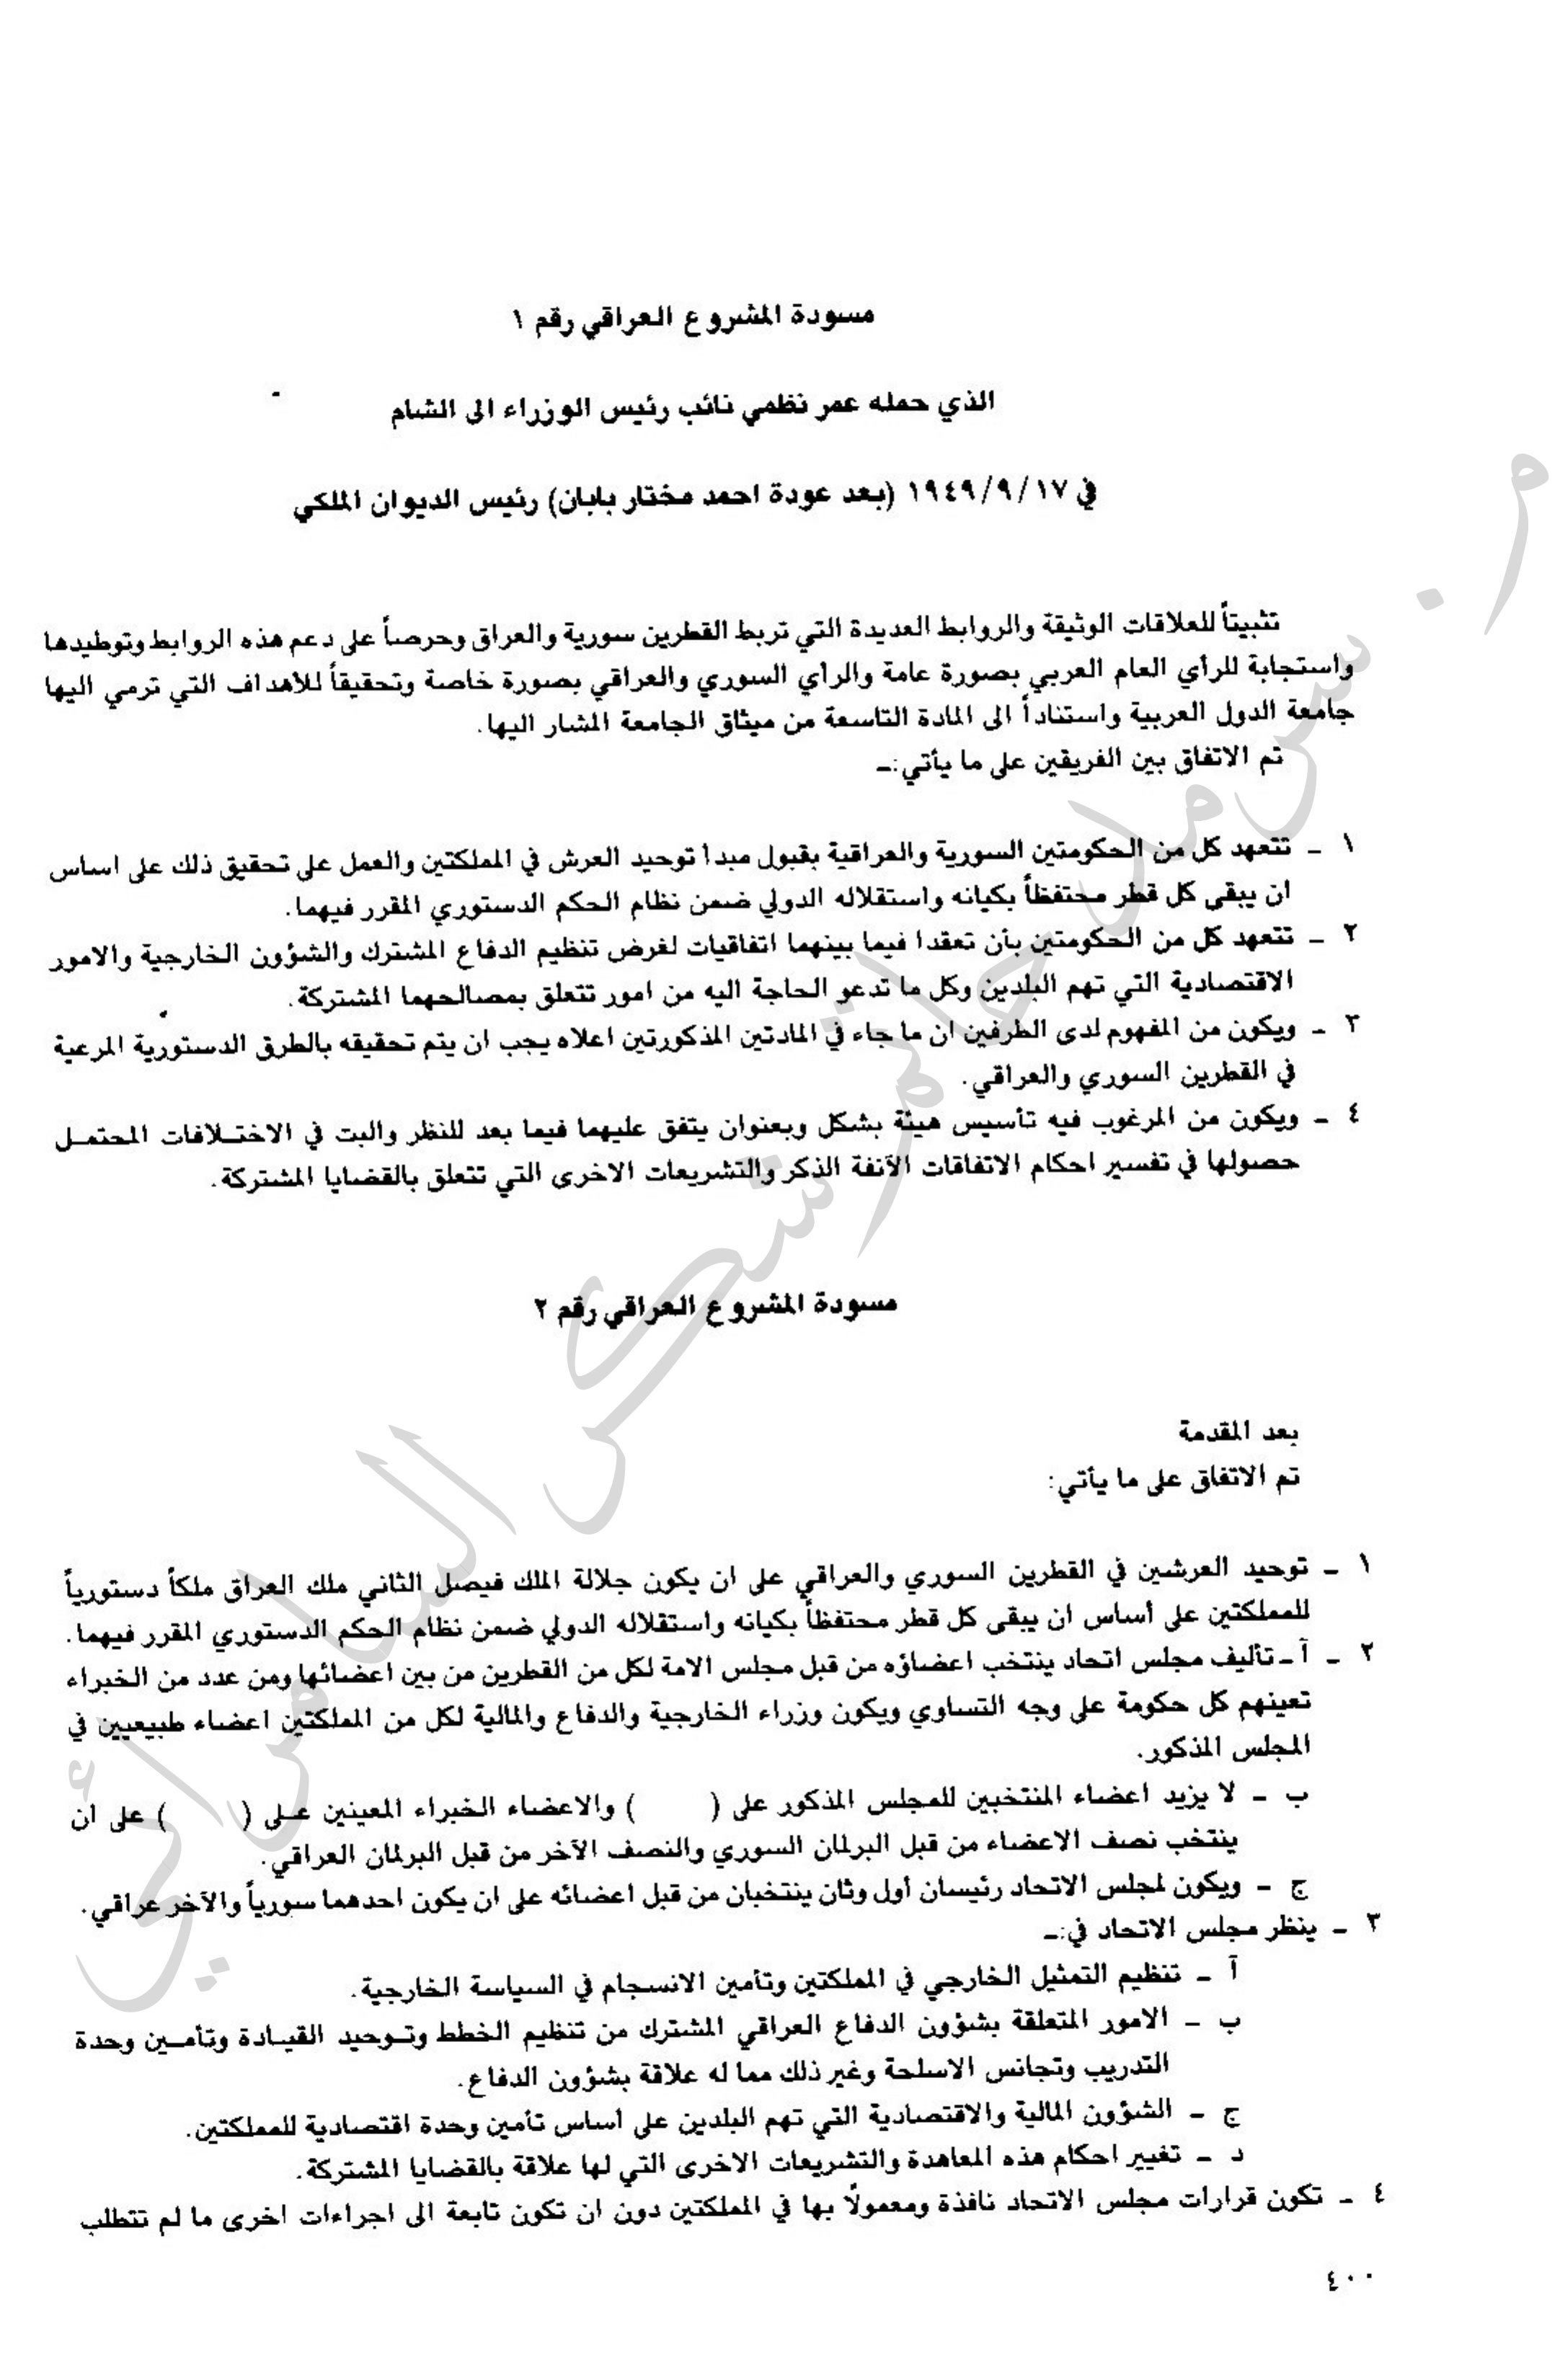 مسودة المشروع العراقي رقم ١
الذي حمله عمر نظمي نائب رئيس الوزراء الى الشام
في ١٩٤٩/٩/١٧ (بعد عودة احمد مختار بابان) رئيس الديوان الملكي
تثبيتاً للعلاقات الوثيقة والروابط العديدة التي تربط القطرين سورية والعراق وحرصاً على دعم هذه الروابط وتوطيدها
واستجابة للرأي العام العربي بصورة عامة والرأي السوري والعراقي بصورة خاصة وتحقيقاً للأهداف التي ترمي اليها
جامعة الدول العربية واستناداً الى المادة التاسعة من ميثاق الجامعة المشار اليها.
تم الاتفاق بين الفريقين على ما يأتي:ـ
١ ـ تتعهد كل من الحكومتين السورية والعراقية بقبول مبدأ توحيد العرش في المملكتين والعمل على تحقيق ذلك على اساس
ان يبقى كل قطر محتفظاً بكيانه واستقلاله الدولي ضمن نظام الحكم الدستوري المقرر فيهما.
٢ ـ تتعهد كل من الحكومتين بأن تعقدا فيما بينهما اتفاقيات لغرض تنظيم الدفاع المشترك والشؤون الخارجية والامور
الاقتصادية التي تهم البلدين وكل ما تدعو الحاجة اليه من امور تتعلق بمصالحهما المشتركة.
٣ ـ ويكون من المفهوم لدى الطرفين ان ما جاء في المادتين المذكورتين اعلاه يجب ان يتم تحقيقه بالطرق الدستورية المرعية
في القطرين السوري والعراقي.
٤ ـ ويكون من المرغوب فيه تأسيس هيئة بشكل وبعنوان يتفق عليهما فيما بعد للنظر والبت في الاختـلافات المحتمـل
حصولها في تفسير احكام الاتفاقات الآنفة الذكر والتشريعات الاخرى التي تتعلق بالقضايا المشتركة.
مسودة المشروع العراقي رقم ٢
بعد المقدمة
تم الاتفاق على ما يأتي:
١ ـ توحيد العرشين في القطرين السوري والعراقي على ان يكون جلالة الملك فيصل الثاني ملك العراق ملكاً دستورياً
للمملكتين على أساس ان يبقى كل قطر محتفظاً بكيانه واستقلاله الدولي ضمن نظام الحكم الدستوري المقرر فيهما.
٢ ـ آ ـ تأليف مجلس اتحاد ينتخب اعضاؤه من قبل مجلس الامة لكل من القطرين من بين اعضائها ومن عدد من الخبراء
تعينهم كل حكومة على وجه التساوي ويكون وزراء الخارجية والدفاع والمالية لكل من المملكتين اعضاء طبيعيين في
المجلس المذكور.
ب ـ لا يزيد اعضاء المنتخبين للمجلس المذكور على (     ) والاعضاء الخبراء المعينين عـلى (     ) على ان
ينتخب نصف الاعضاء من قبل البرلمان السوري والنصف الآخر من قبل البرلمان العراقي.
ج ـ ويكون لمجلس الاتحاد رئيسان أول وثان ينتخبان من قبل اعضائه على ان يكون احدهما سورياً والآخر عراقي.
٣ ـ ينظر مجلس الاتحاد في:ـ
آ ـ تنظيم التمثيل الخارجي في المملكتين وتأمين الانسجام في السياسة الخارجية.
ب ـ الامور المتعلقة بشؤون الدفاع العراقي المشترك من تنظيم الخطط وتـوحيد القيـادة وتأمـين وحدة
التدريب وتجانس الاسلحة وغير ذلك مما له علاقة بشؤون الدفاع.
ج ـ الشؤون المالية والاقتصادية التي تهم البلدين على أساس تأمين وحدة اقتصادية للمملكتين.
د ـ تغيير احكام هذه المعاهدة والتشريعات الاخرى التي لها علاقة بالقضايا المشتركة.
٤ ـ تكون قرارات مجلس الاتحاد نافذة ومعمولًا بها في المملكتين دون ان تكون تابعة الى اجراءات اخرى ما لم تتطلب
٤٠٠